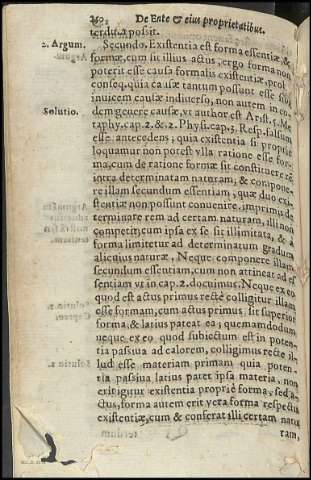 250. De Ente & eius proprietatibus.
terdũ. possit.
2. Argum. Secundo. Existentia est forma essentiæ, &
formæ, cum sit illius actus; ergo forma non
poterit esse causa formalis existentiæ, prob.
conseq. quia causæ tantum possunt esse sibi
inuicem causæ in diuerso, non autem in eo-
dem genere causæ, vt author est Arist. 5. Me
Solutio. taphy. cap. 2. & 2. Physi. cap. 3. Resp. falsum
esse antecedens; quia existentia si proprie
loquamur non potest vlla ratione esse for-
ma, cum de ratione formæ sit constituere
intra determinatam naturam, & componere
re illam secundum essentiam, quæ duo exi-
stentiæ non possunt conuenire, imprimis de
terminare rem ad certam naturam, illi non
competit; cum ipsa ex se sit illimitata, & a
forma limitetur ad determinatum gradum
alicuius naturæ, Neque componere illam
secundum essentiam, cum non attineat ad es
sentiam vt in cap. 2. docuimus. Neque ex eo
quod est actus primus rectè colligitur illam
esse formam, cum actus primus, sit superior
forma, & latius pateat ea; quemadmodum
neque ex eo quod subiectum est in poten-
tia passiua ad calorem, colligimus recte il-
lud esse materiam primam quia poten-
tia passiua latius patet ipsa materia, non
erit igitur existentia proprie forma, sed a-
ctus, forma autem erit vera forma respectu
existentiæ, cum & conferat illi certam natu
ram,